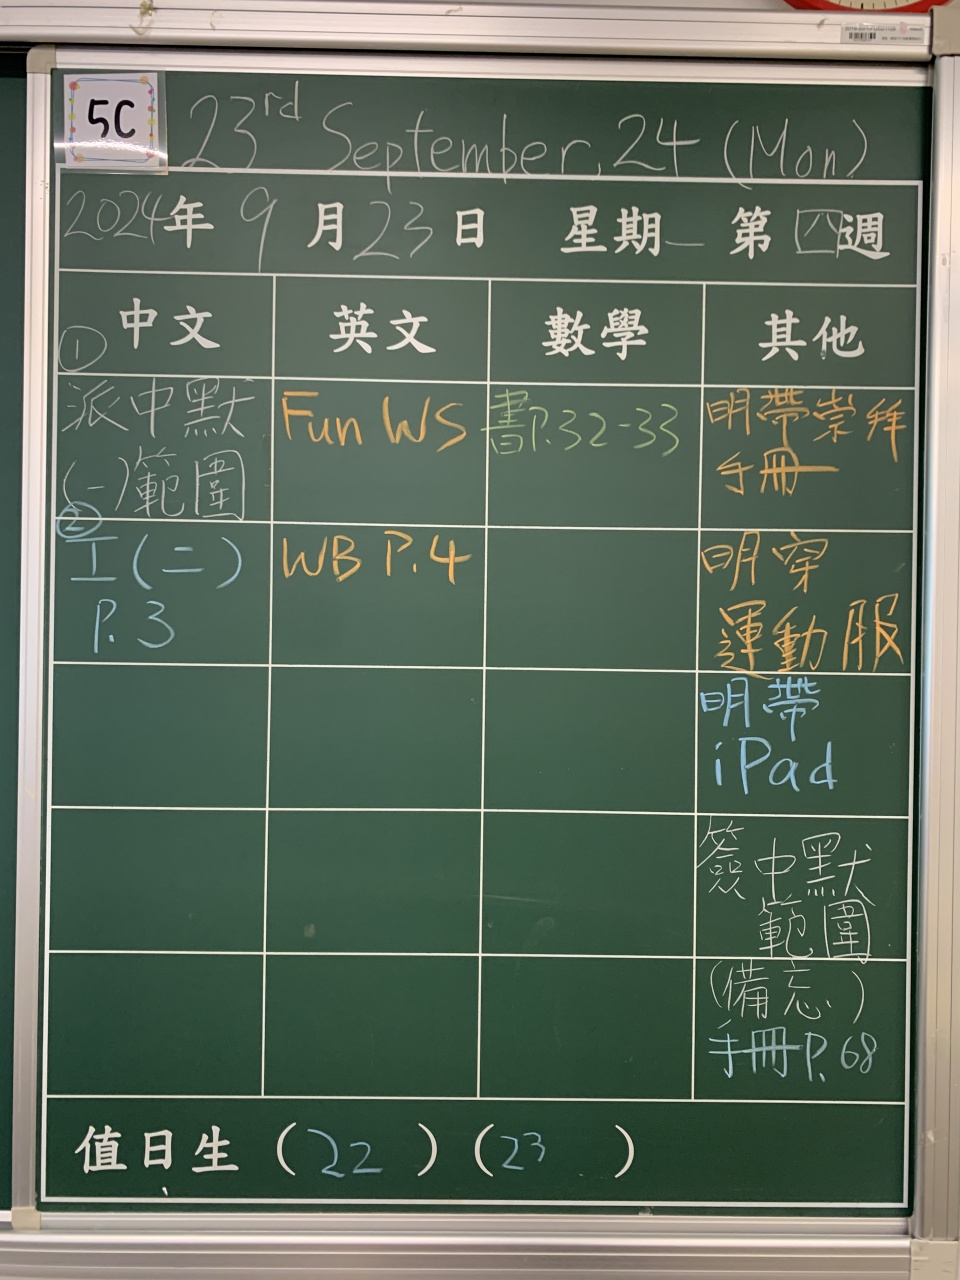 5C
23rd September, 24 (Mon)
2024年 9 月 23 日 星期一 第四週
中文 英文 數學 其他
①
派中默
(一)範圍
Fun WS
書P.32-33
明帶崇拜
手冊
②
工(二)
P.3
WB P.4
明穿
運動服
明帶
iPad
簽中默
範圍
(備忘)
手冊P.68
值日生 (22) (23)